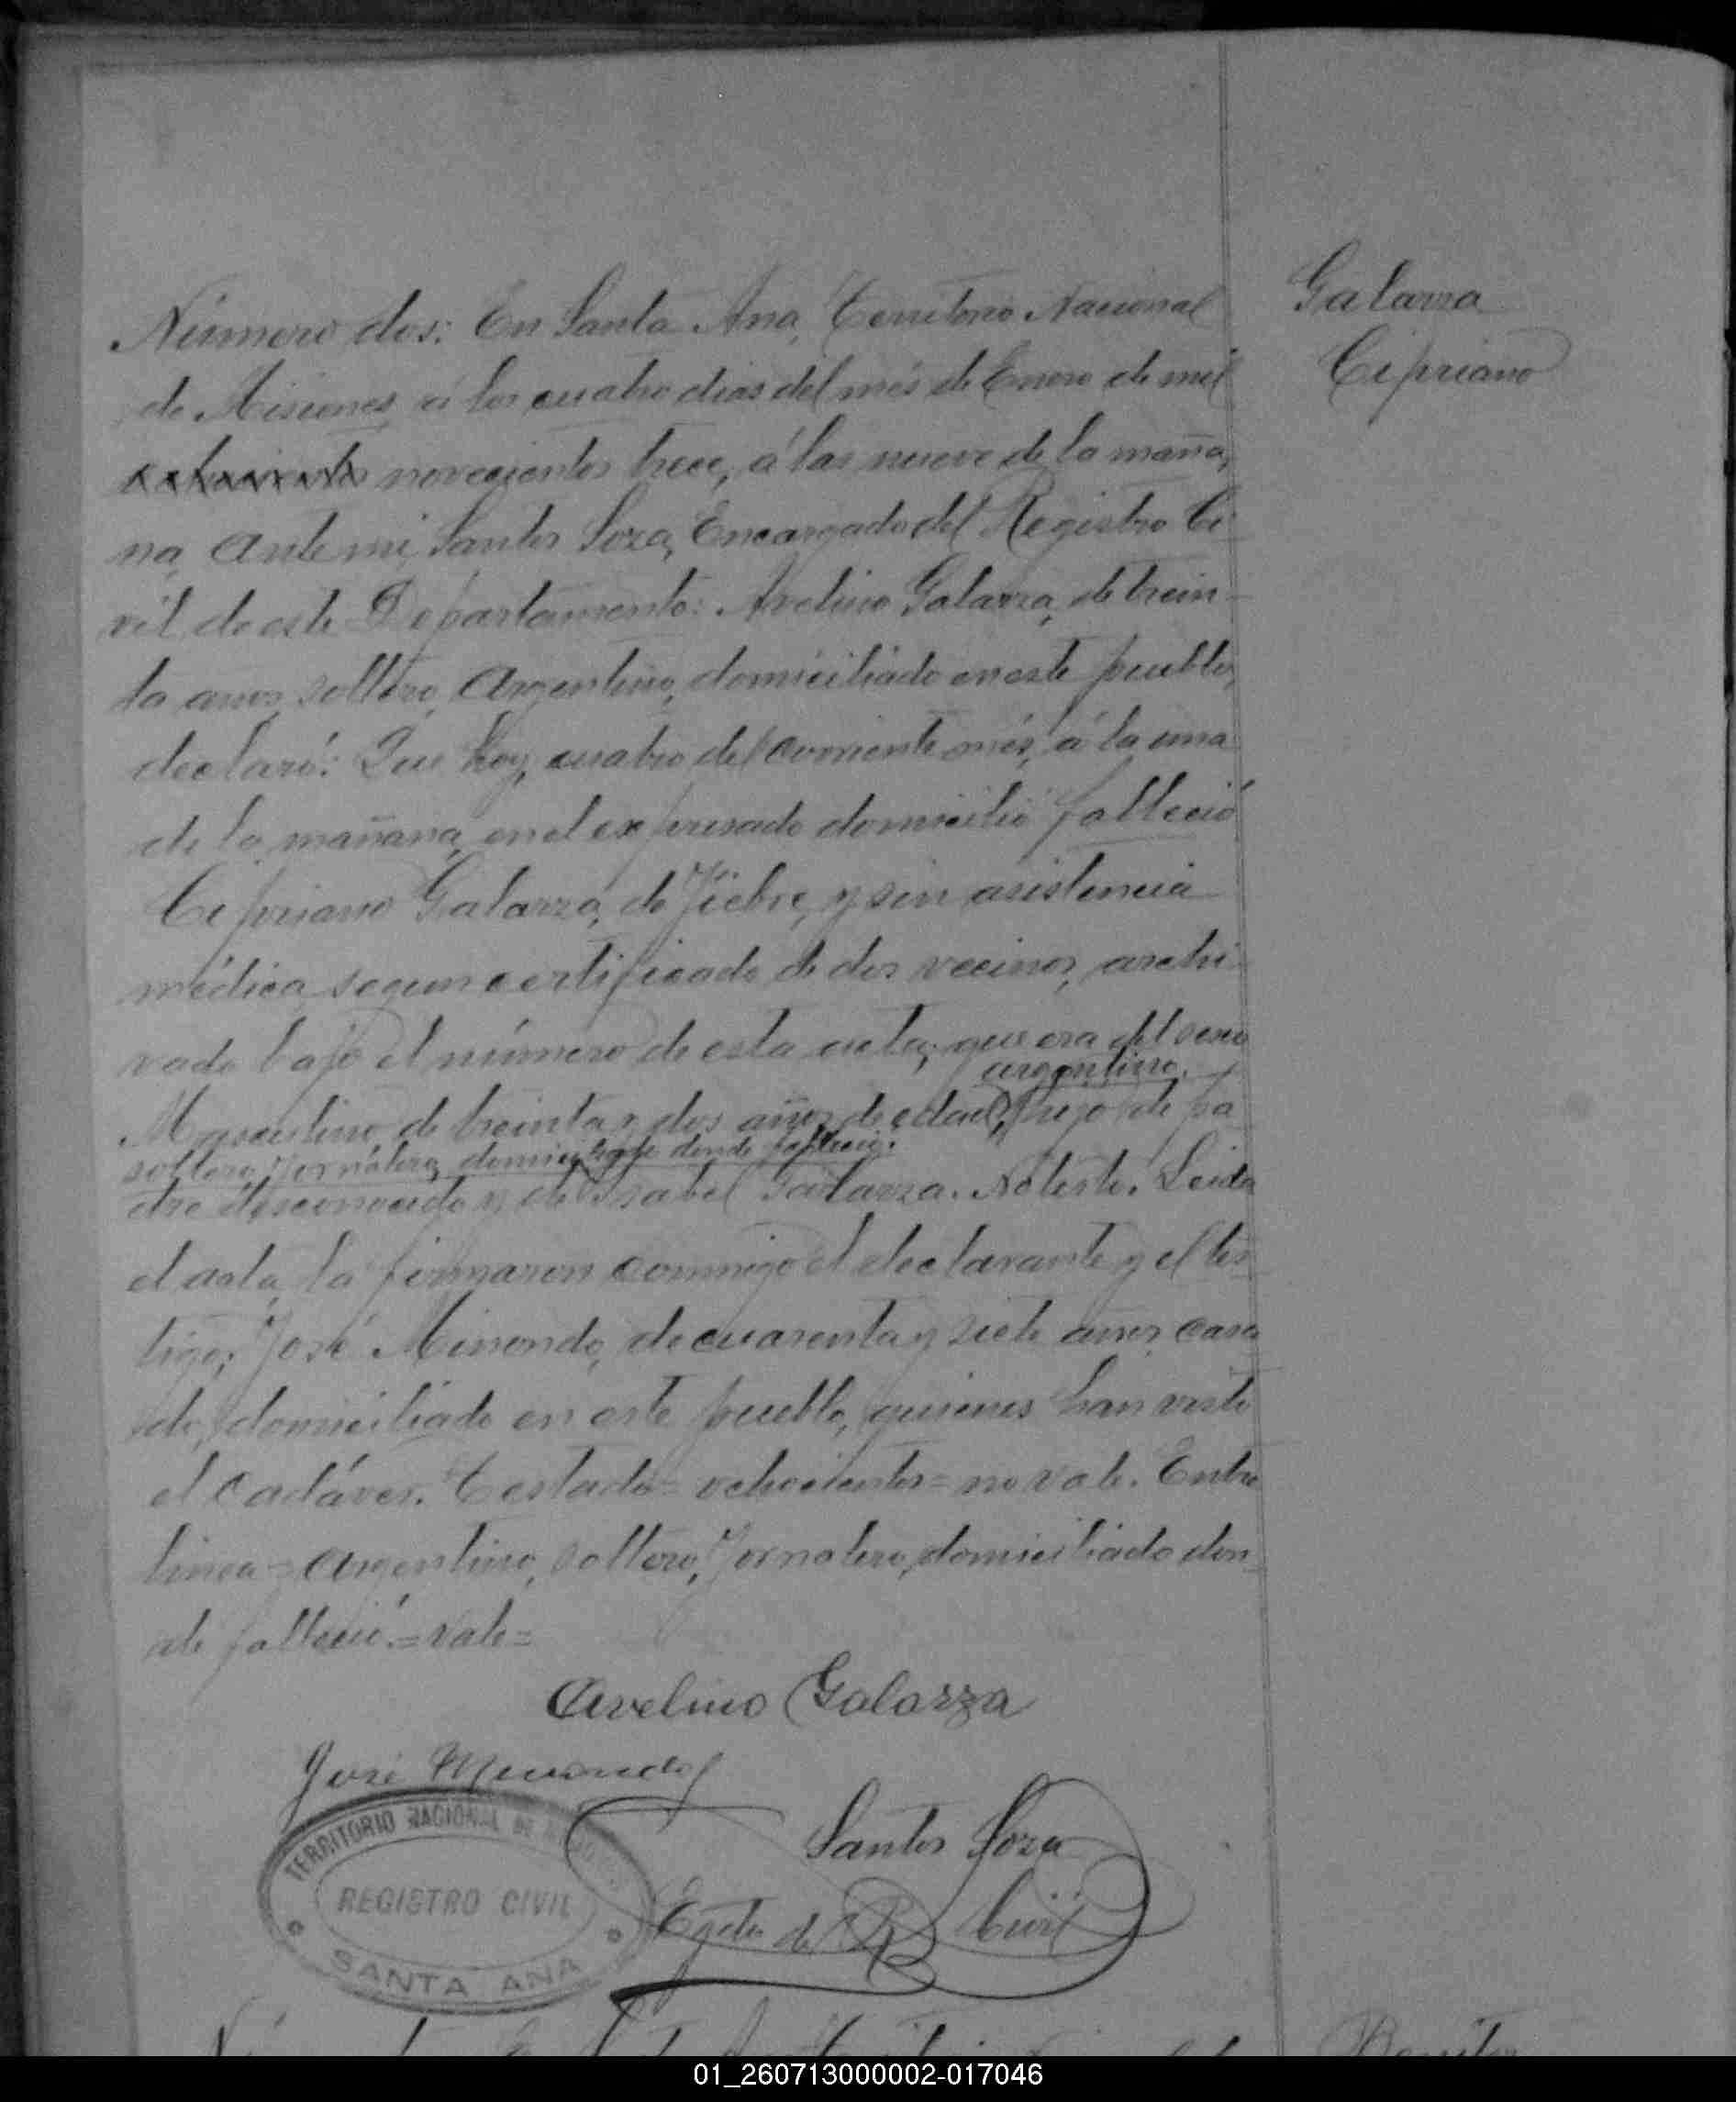 Galarza
Cipriano
Número dos: En Santa Ana, Territorio Nacional
de Misiones, á los cuatro dias del més de Enero de mil
ochocientos novecientos trece, á las nueve de la maña,
na, Ante mi, Santos Soza, Encargado del Registro Ci
vil de este Departamento: Avelino Galarza, de trein-
ta anos, soltero, Argentino, domiciliado en este pueblo,
declaró: Que hoy, cuatro del corriente més, á la una
de la mañana, en el expresado domicilio falleció
Cipriano Galarza, de fiebre, y sin asistencia
médica, segun certificado de dos vecinos, archi
vado bajo el número de esta acta; que era del sexo
argentino,
Masculino, de treinta y dos años de edad, hijo de pa
soltero, Jornalero, domiciliado donde falleció.
dre desconocido y de Isabel Galarza. No testó. Leida
el acta, la firmaron conmigo el declarante y el tes
tigo; José Minondo, de cuarenta y siete anos, casa
do, domiciliado en este pueblo, quienes han visto
el Cadáver. Testado = ochocientos = no vale. Entre
linea = Argentino, soltero, Jornalero, domiciliado don
de falleció. = vale =
Avelino Galarza
José Minondo
Santos Soza
Egdo. del R. Civil
TERRITORIO NACIONAL DE MISIONES
REGISTRO CIVIL
SANTA ANA
Benitez
01_260713000002-017046